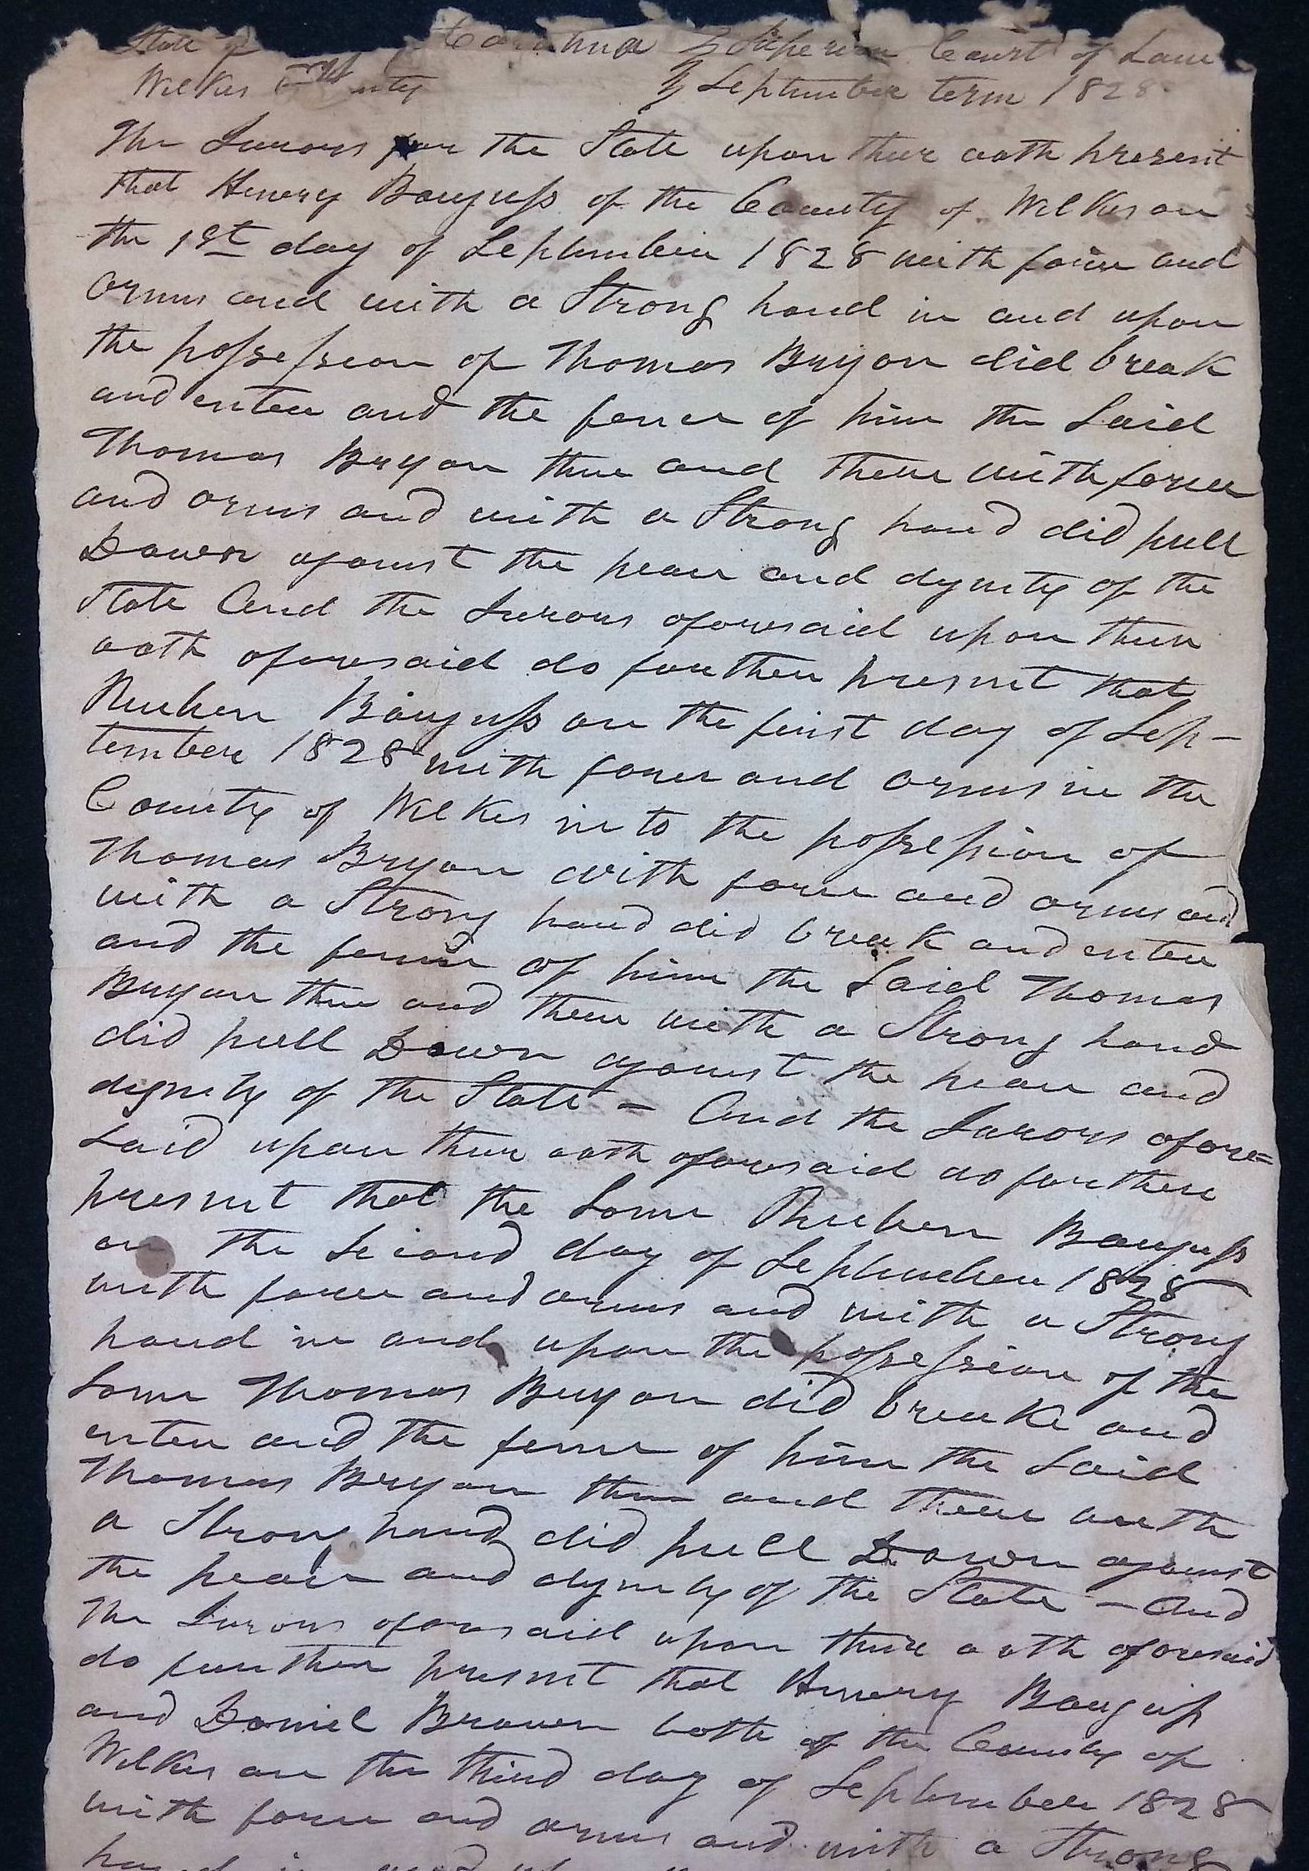 State of Carolina } Superior Court of Law
Wilkes County } September term 1828
The Jurors for the State upon their oath present
that Henery Bauguss of the County of Wilkes on
the 1st day of September 1828 with force and
arms and with a Strong hand in and upon
the possession of Thomas Bryan did break
and enter and the fence of him the Said
Thomas Bryan then and there with force
and arms and with a Strong hand did pull
Down against the peace and dignity of the
State And the Jurors aforesaid upon their
oath aforesaid do further present that
Reuben Bauguss on the first day of Sep-
tember 1828 with force and arms in the
County of Wilkes in to the possession of
Thomas Bryan with force and arms and
with a Strong hand did break and enter
and the fence of him the Said Thomas
Bryan then and there with a Strong hand
did pull Down against the peace and
dignity of the State - And the Jurors afore=
Said upon their oath aforesaid do further
present that the Same Reuben Bauguss
on the Second day of September 1828
with force and arms and with a Strong
hand in and upon the possession of the
Same Thomas Bryan did break and
enter and the fence of him the Said
Thomas Bryan then and there with
a Strong hand did pull Down against
the peace and dignity of the State - And
the Jurors aforesaid upon their oath aforesaid
do further present that Henery Bauguss
and Daniel Brown both of the County of
Wilkes on the third day of September 1828
with force and arms and with a Strong
hand in and